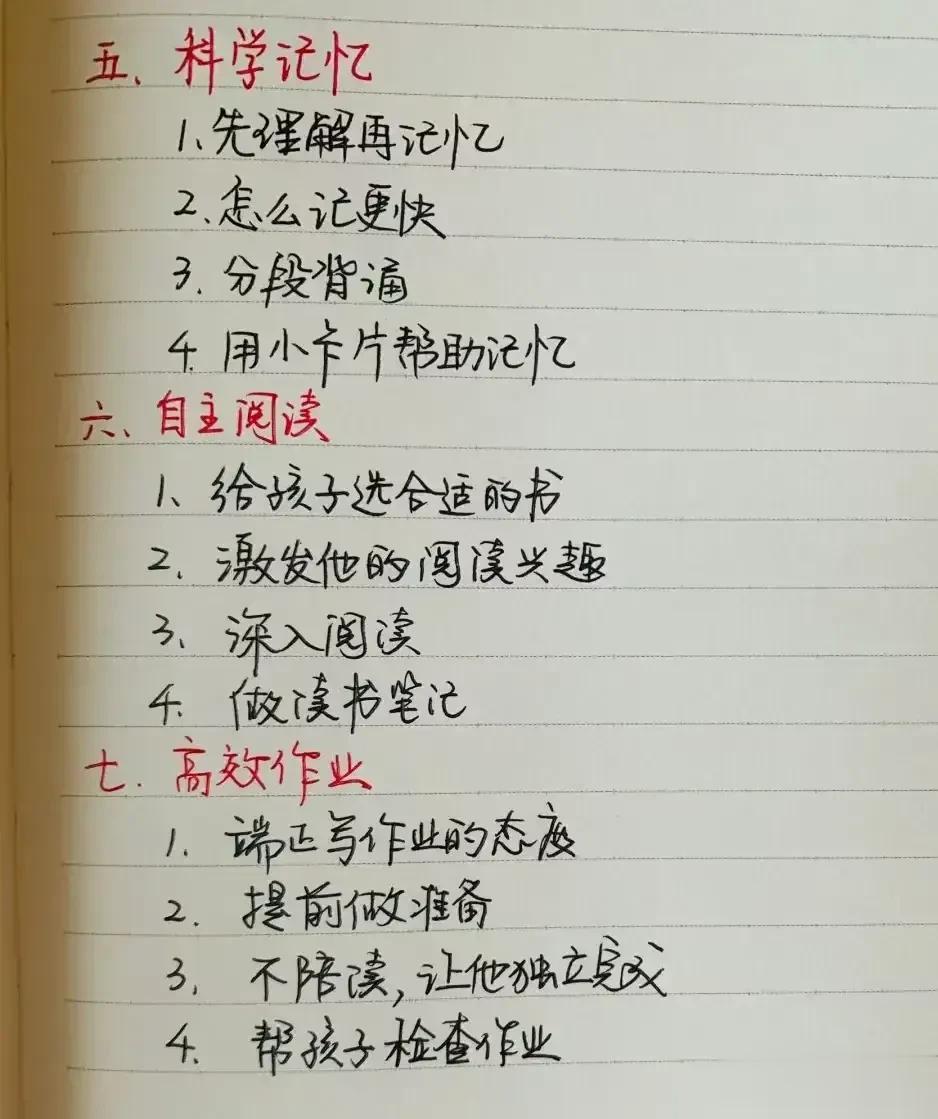 五、科学记忆
1、先理解再记忆
2、怎么记更快
3、分段背诵
4、用小卡片帮助记忆
六、自主阅读
1、给孩子选合适的书
2、激发他的阅读兴趣
3、深入阅读
4、做读书笔记
七、高效作业
1、端正写作业的态度
2、提前做准备
3、不陪读,让他独立完成
4、帮孩子检查作业